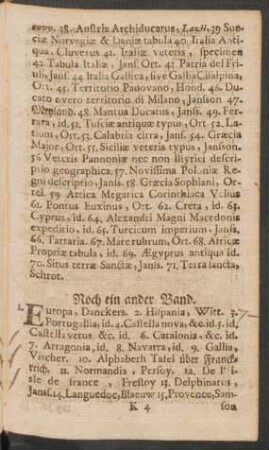 38. Austria Archiducatus, Lazii. 39 Sue-
ciæ Norvegiæ & Daniæ tabula 40. Italia Anti-
qua, Cluverus 41. Italiæ veteris, specimen
42 Tabula Italiæ, Jans. Ort. 43 Patria del Fri-
uli, Jans. 44 Italia Gallica, sive Gallia Cisalpina,
Ort. 45. Territorio Padovano, Hond. 46. Du-
cato overo territorio di Milano, Janson 47.
48. Mantua Ducatus, Jans. 49. Fer-
rara, id. 51. Tusciæ antiquæ typus, Ort. 52. La-
tium, Ort. 53. Calabria citra, Jans. 54. Græcia
Major, Ort. 55. Siciliæ veteris typus, Janson.
56 Veteris Pannoniæ nec non Illyrici descri-
ptio geographica. 57. Novissima Poloniæ Re-
gni descriptio, Janss. 58 Græcia Sophiani, Or-
tel. 59 Attica Megarica Corinthiaca
61 Pontus Euxinus, Ort. 62. Creta, id. 63.
Cyprus, id. 64. Alexandri Magni Macedonis
expeditio, id. 65. Turcicum imperium, Janss.
66. Tartaria. 67. Mare rubrum, Ort. 68. Africæ
Propriæ tabula, id. 69. Ægyptus antiqua id.
70. Situs terræ Sanctæ, Janss. 71. Terra sancta,
Schrot.
Noch ein ander Band.
1. Europa, Danckers. 2. Hispania, Witt. 3.
Portugallia, id. 4. Castella nova, &c. id. 5. id.
Castella vetus, &c. id. 6. Catalonia, &c. id.
7. Arragonia, id. 8. Navarra, id. 9. Gallia,
Vischer. 10. Alphabeth Tafel über Franck-
reich. 11. Normandia, Persoy. 12. De l'
isle de france, Frestoy 13. Delphinatus,
Janss. 14. Languedoc, Blaeuw 15, Provence, San-
K 4 sou